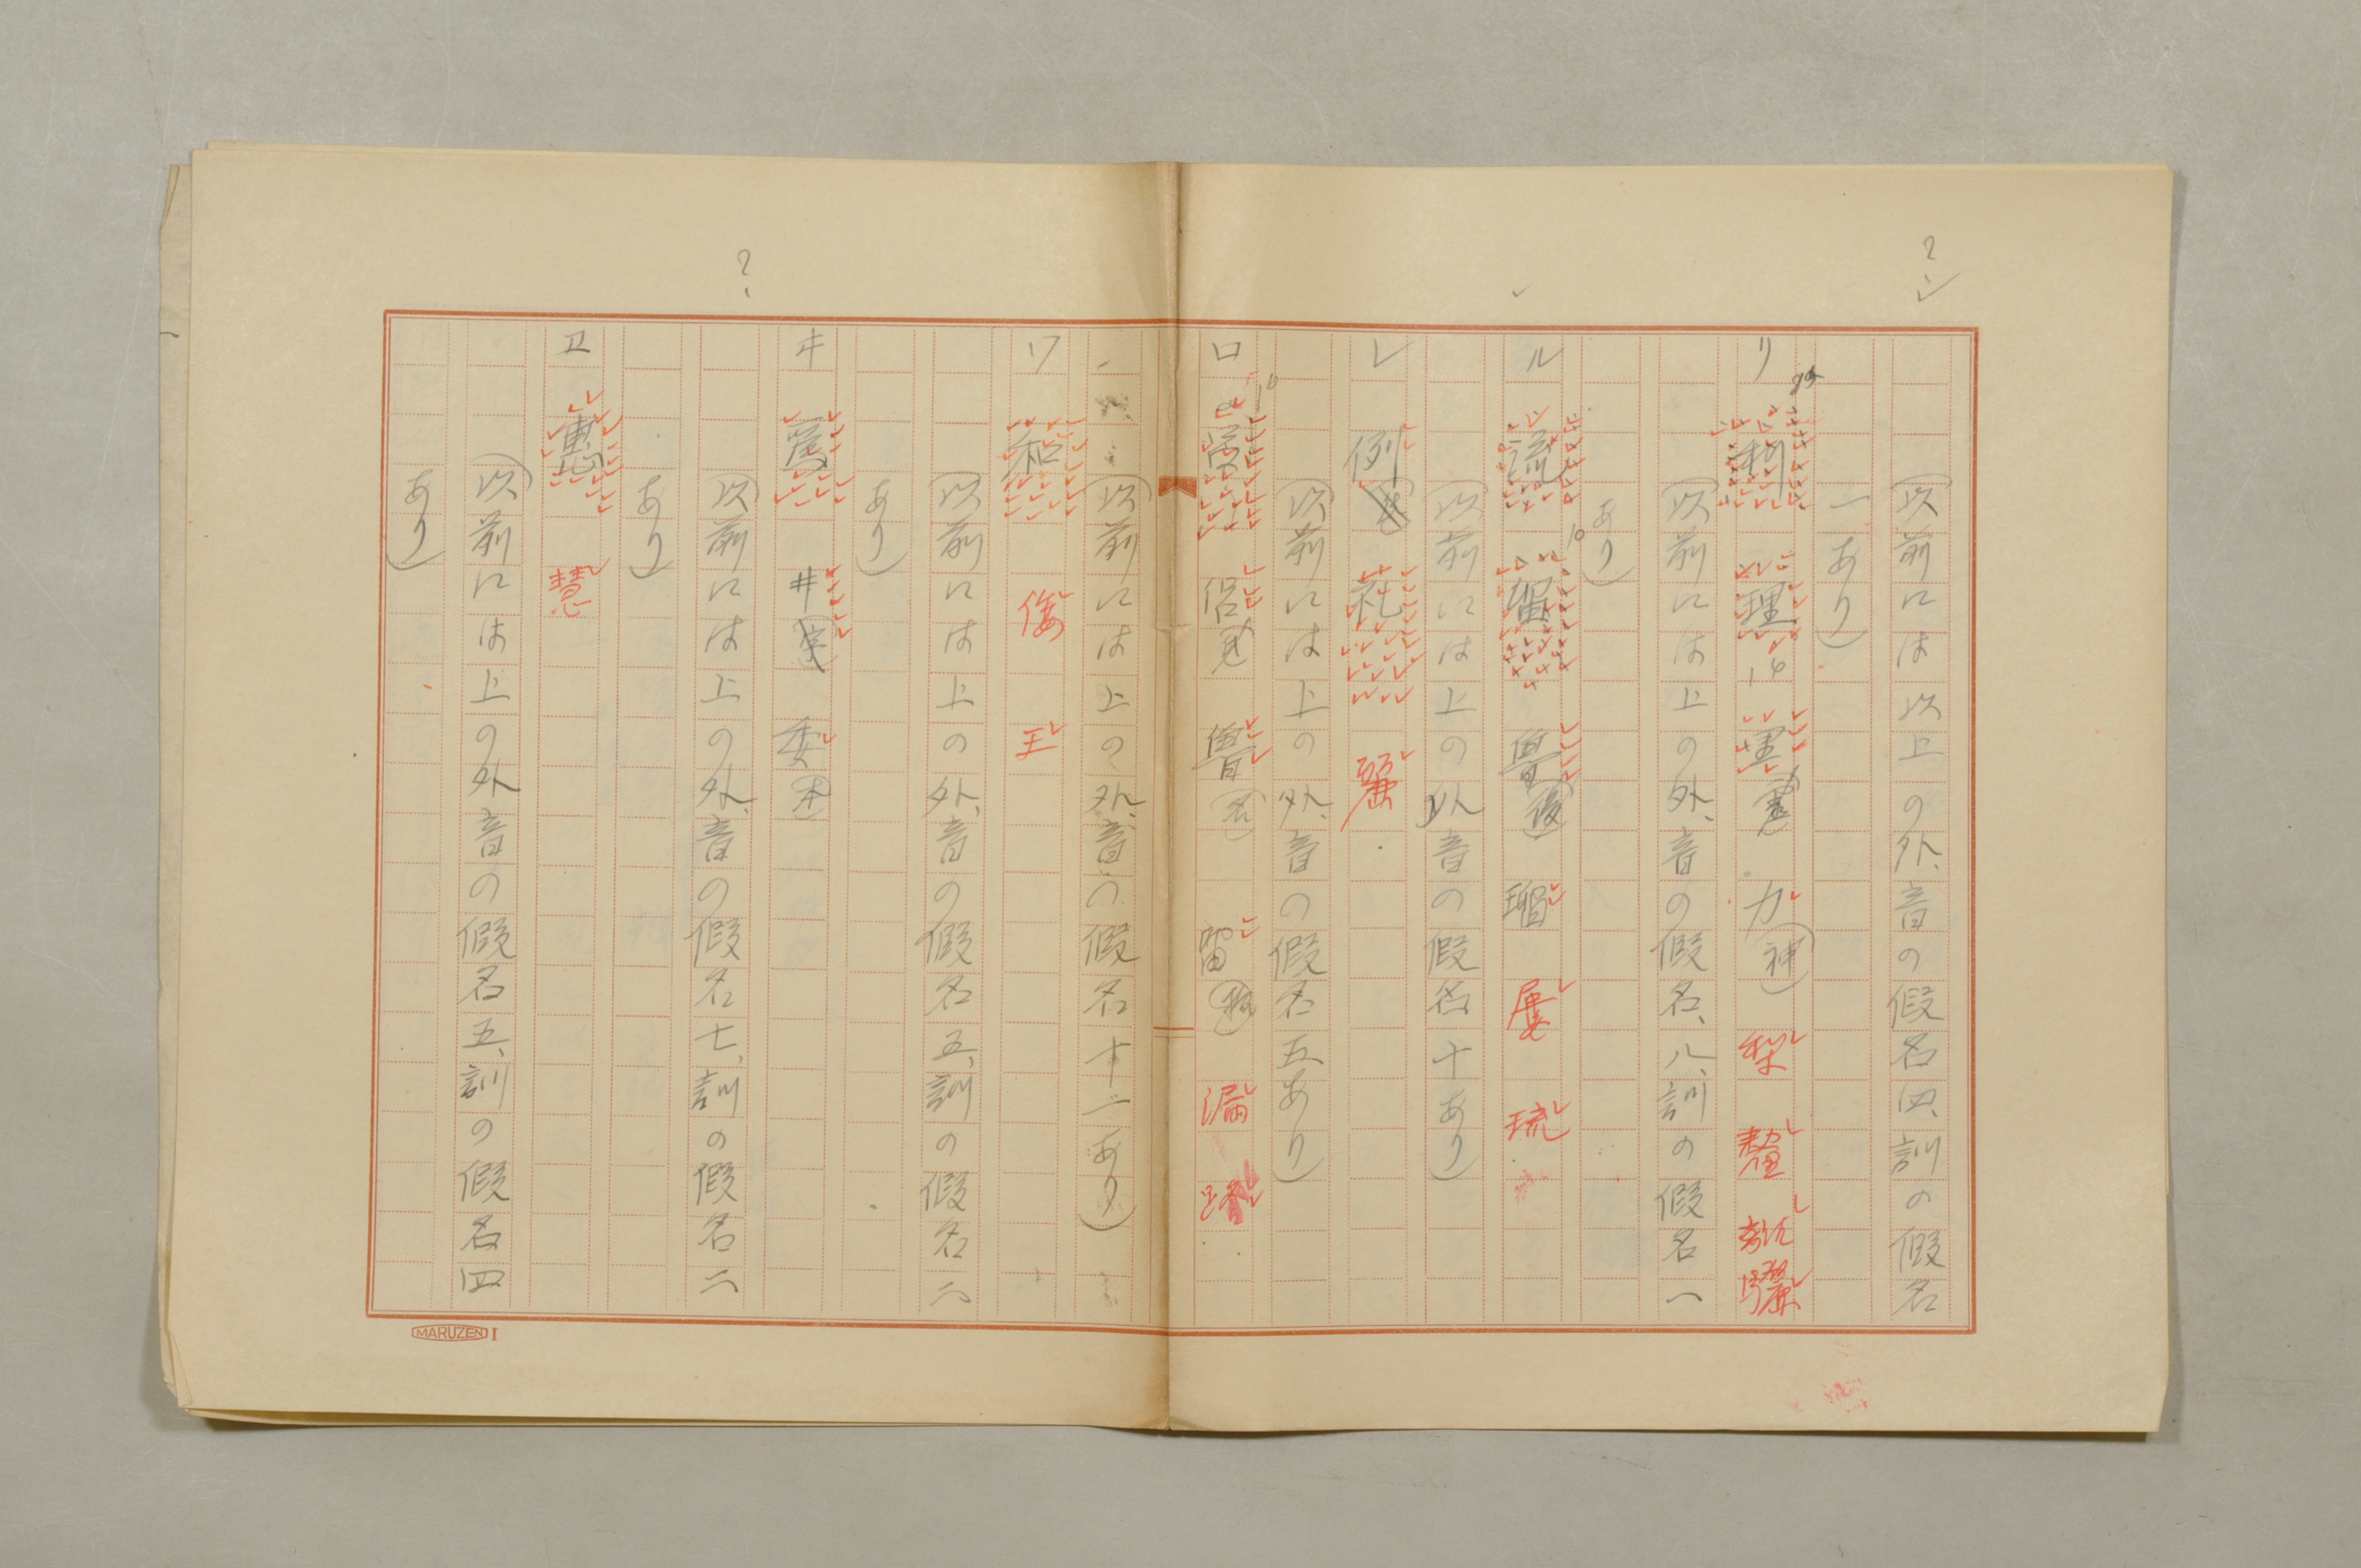 (以前には以上の外、音の假名四、訓の假名
一あり)
リ 利 理 里 力(神) 梨 釐 驪
(以前には上の外、音の假名、八、訓の假名一
あり)
ル 流 留 魯(後) 瑠 屢 琉
(以前には上の外音の假名十あり)
レ 例 礼 麗
(以前には上の外、音の假名五あり)
ロ 侶 魯(名) 留 漏 路
(以前には上の外、音の假名十二あり)
ワ 和 倭 王
(以前には上の外、音の假名五、訓の假名二
あり)
ヰ 爲 井 委(本)
(以前には上の外、音の假名七、訓の假名二
あり)
ヱ 惠 慧
(以前には上の外音の假名五、訓の假名四
あり)
MARUZEN I